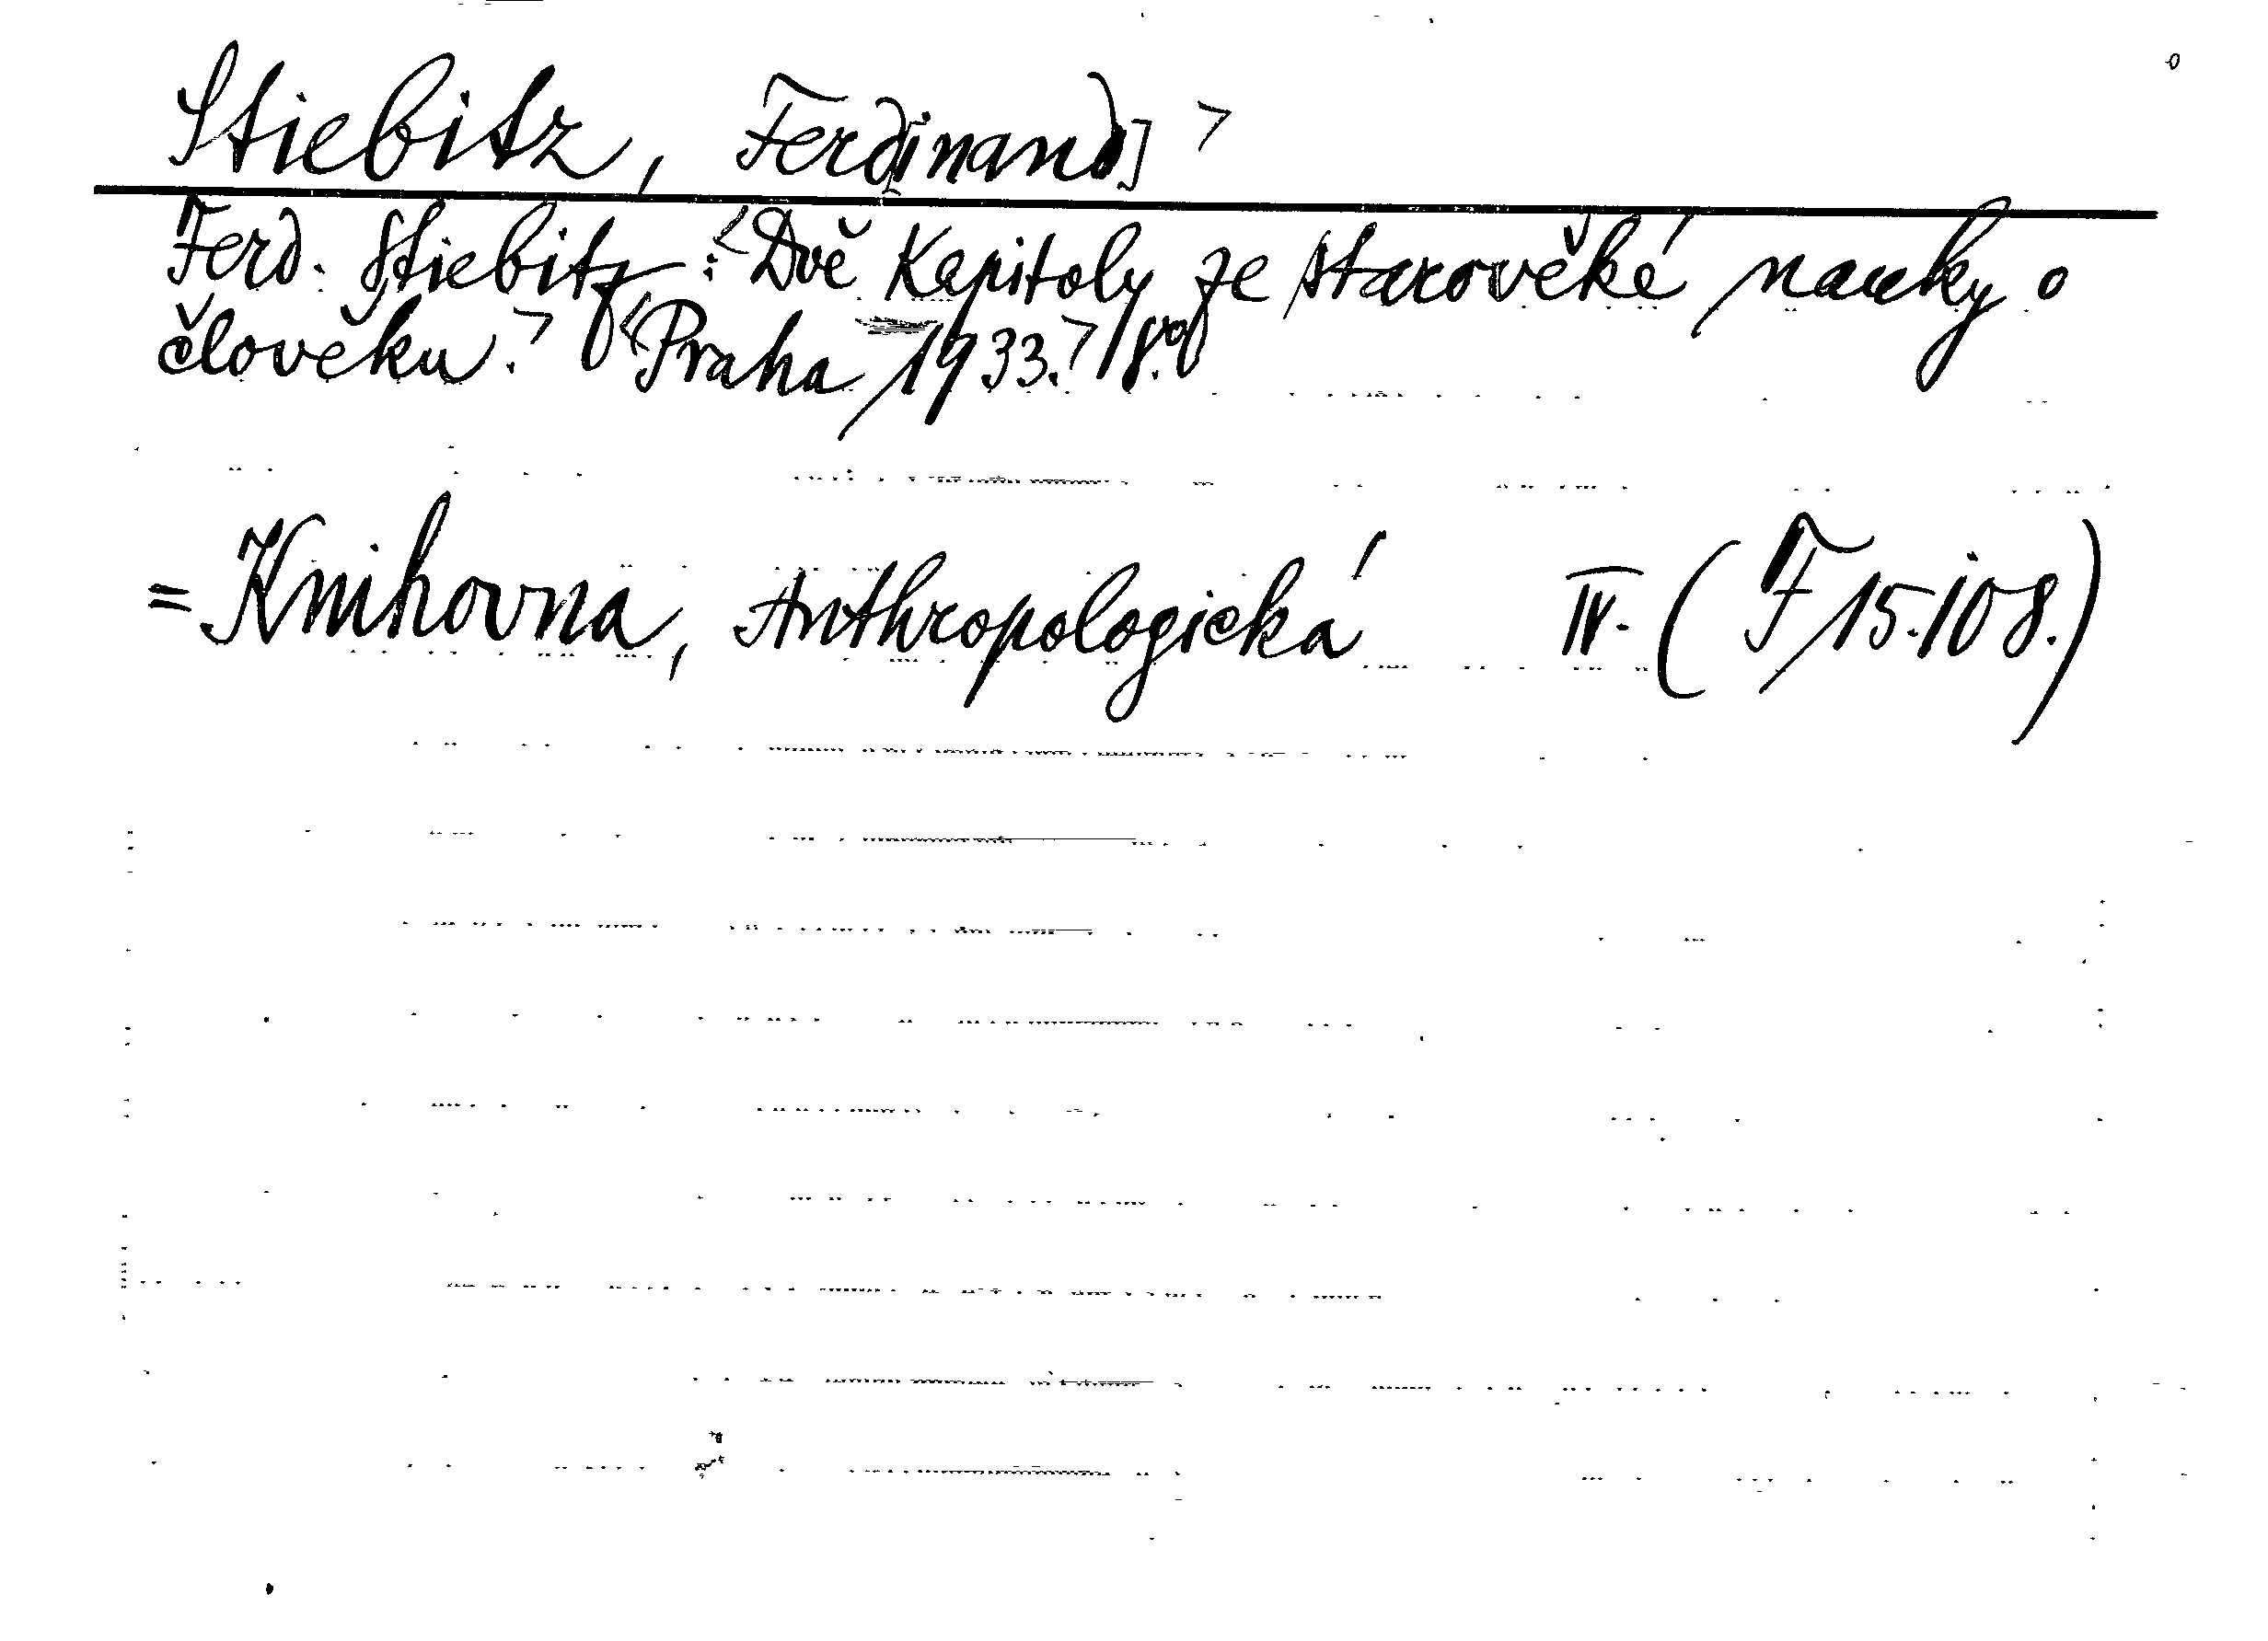 Stiebitz, Ferd[inand] >
Ferd. Stiebitz: <Dvě Kapitoly ze starověké nauky o
člověku.> <Praha 1933.> 8.º
= Knihovna, Anthropologická IV. (F 15.108.)